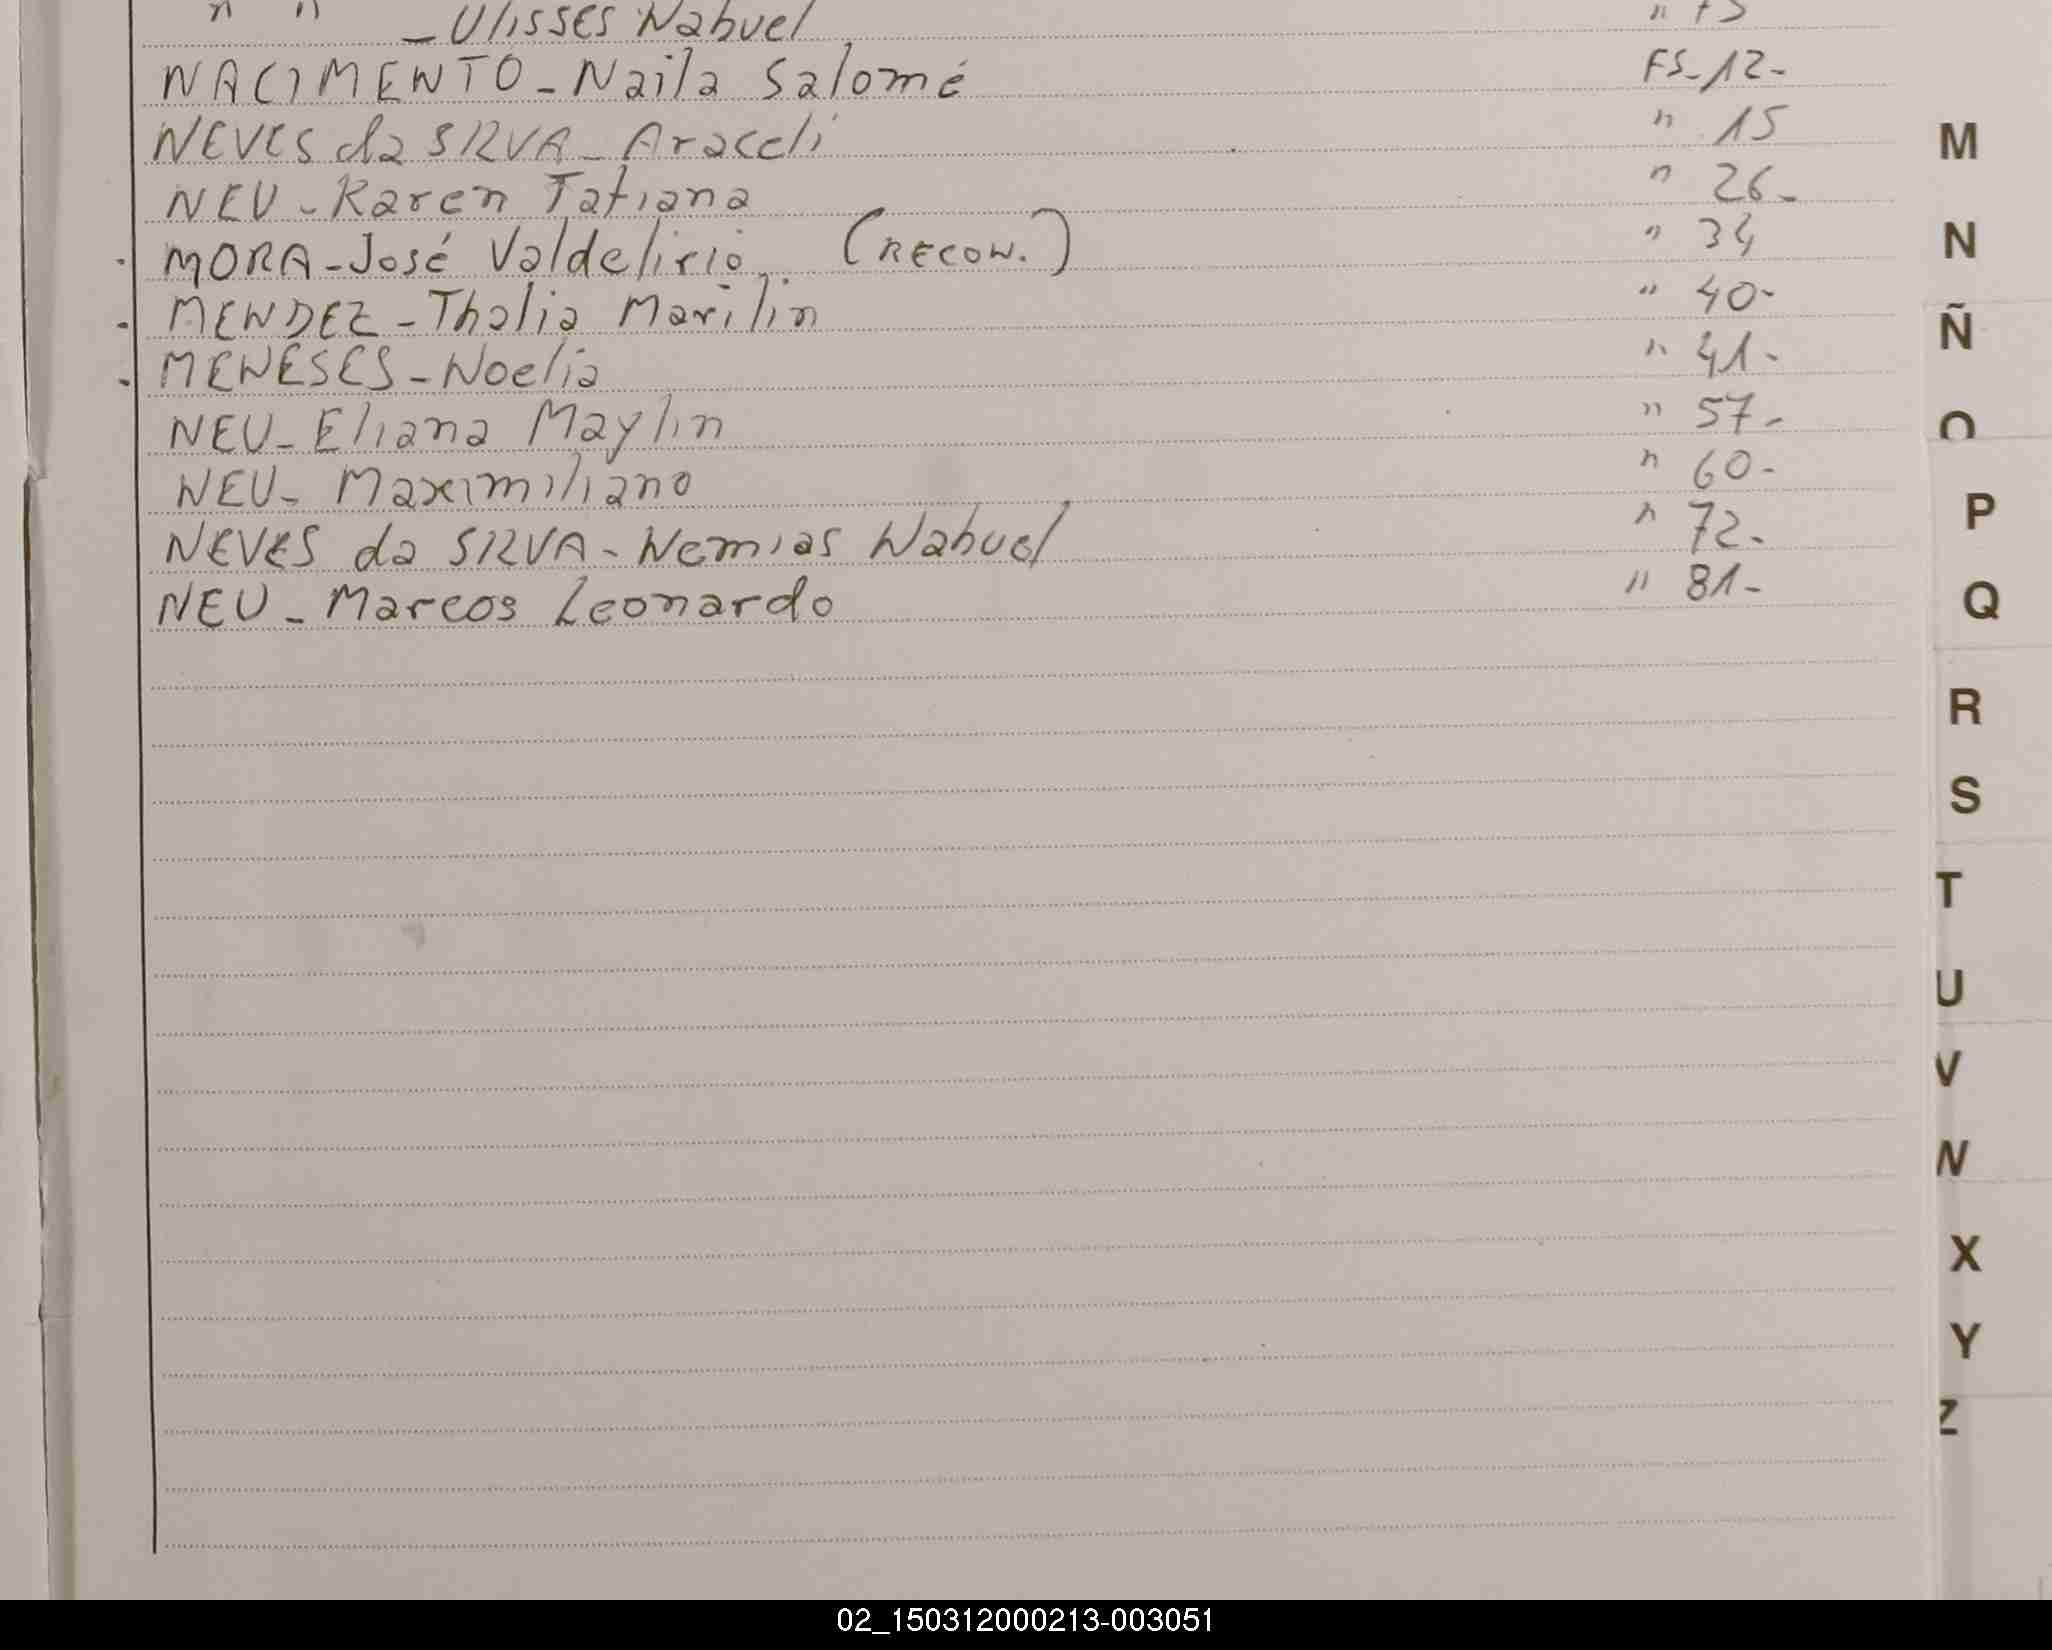 " " - Ulisses Nahuel "
NACIMENTO - Naila Salomé FS-12-
NEVES da SILVA - Araceli " 15
NEU - Karen Tatiana " 26-
MORA - José Valdelirio (RECON.) " 34
MENDEZ - Thalia Marilin " 40-
MENESES - Noelia " 41-
NEU - Eliana Maylin " 57-
NEU - Maximiliano " 60-
NEVES da SILVA - Nemias Nahuel " 72-
NEU - Marcos Leonardo " 81-
M
N
Ñ
O
P
Q
R
S
T
U
V
W
X
Y
Z
02_150312000213-003051